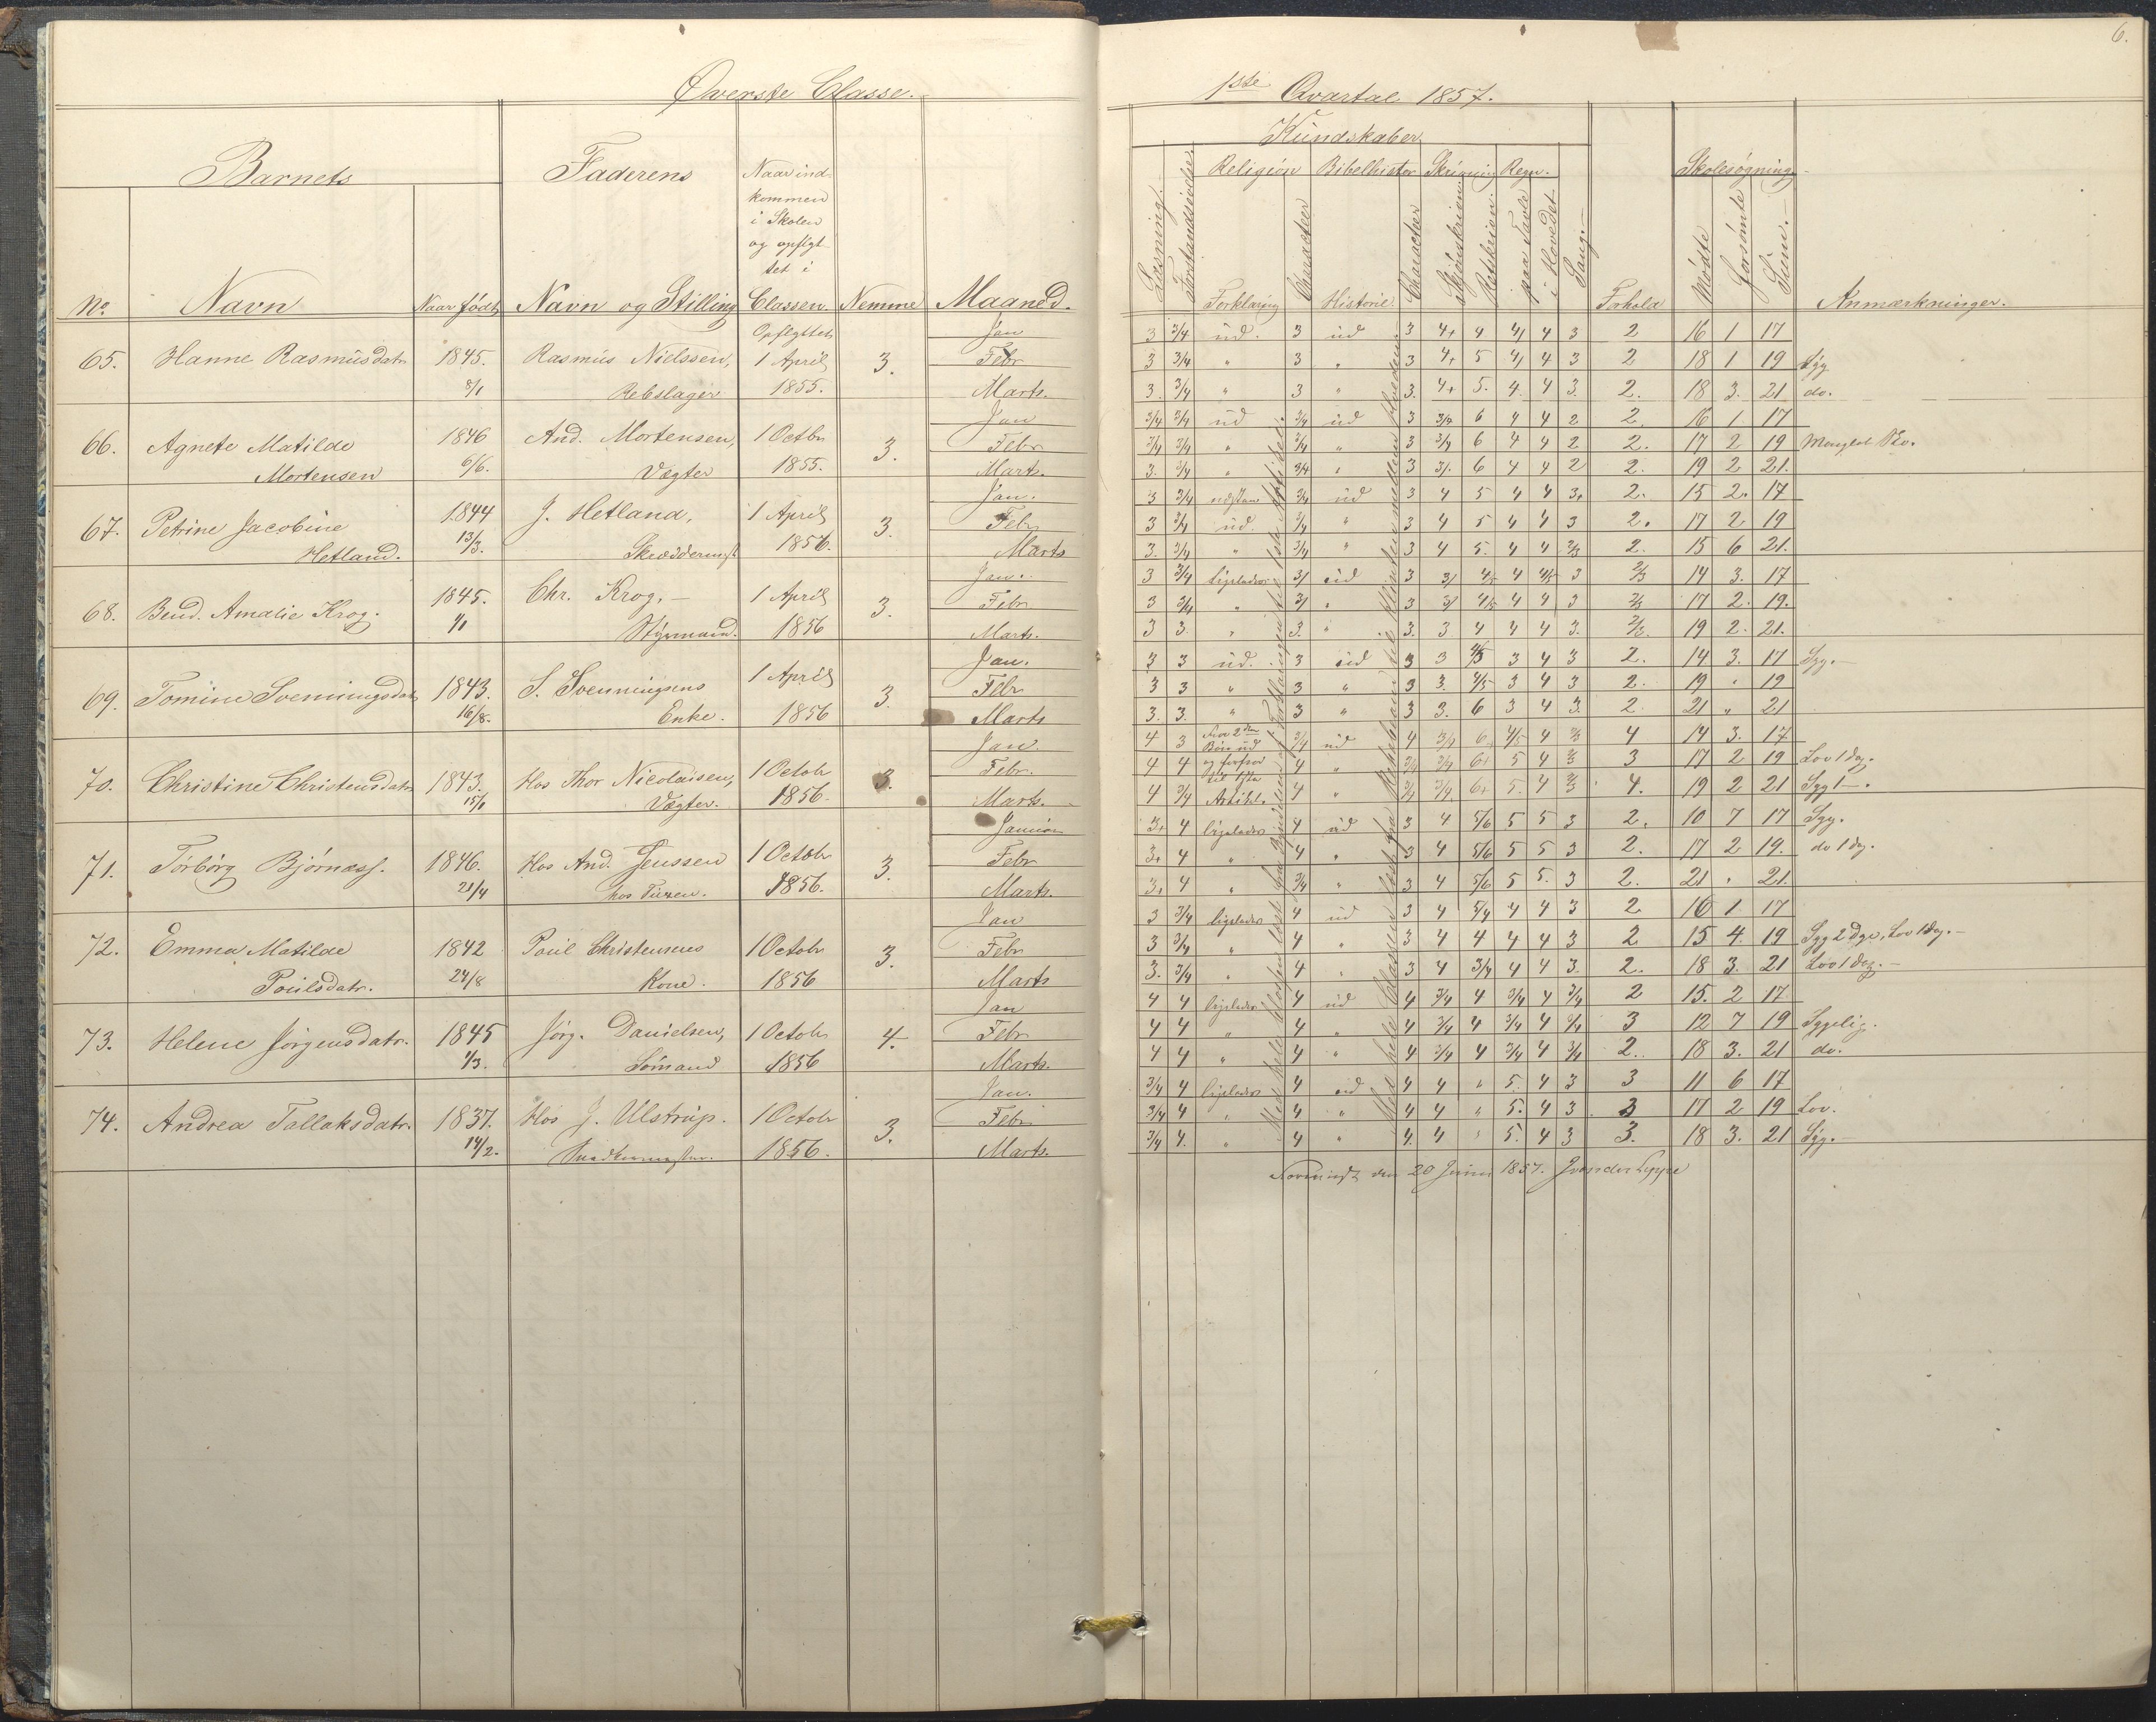 Øverste Classe.
Barnets
Faderens
Naar ind-
kommen
i Skolen
og opflyt-
tet i
No. Navn Naar født Navn og Stilling Classen. Nemme Maaned.
Opflyttet Jan
65. Hanne Rasmusdatr 1845. Rasmus Nielssen, 1 April 3. Febr
8/1 Rebslager 1855. Marts.
Jan
66. Agnete Matilde 1846 And. Mortensen, 1 Octbr 3. Febr
Mortensen 6/6. Vægter 1855. Marts.
Jan.
67. Petrine Jacobine 1844 J. Hetland, 1 April 3. Febr
Hetland. 13/3. 1856. Marts
Jan.
68. Bend. Amalie Krog. 1845. Chr. Krog. 1 April 3. Febr
1/1 Styrmand. 1856 Marts.
Jan.
69. Tomine Sveningsdatr 1843. S. Svenningsens 1 April 3. Febr
16/8. Enke. 1856 Marts
Jan.
70. Christine Christensdatr 1843. Hos Thor Nicolaisen, 1 Octobr 3. Febr.
15/1 Vægter. 1856. Marts.
Januar
71. Torborg Bjørnass. 1846. Hos And. Jenssen 1 Octobr 3. Febr
21/4 1856. Marts.
Jan
72. Emma Matilde 1842 Poul Christensens 1 Octobr 3. Febr
Poulsdatr. 24/8 Kone. 1856 Marts
Jan
73. Helene Jørgensdatr. 1845 Jørg. Danielsen, 1 Octobr 4. Febr
1/3. Sømand 1856 Marts.
Jan.
74. Andrea Tallaksdatr. 1837. Hos J. Ulstrup. 1 Octobr 3. Febr
14/2. 1856. Marts.
6.
1ste Qvartal 1857.
Kundskaber
Religion Bibelhistor Skrivning Regn. Skolesøgning
Læsning. Forstandsøvelse. Forklaring Character Historie Character Skjønskriven Retskriven paa Tavle i Hovedet Sang. Forhold Mødte Forsømte Sum. Anmærkninger.
3 3/4 ud. 3 ud 3 4+ 4 4/ 4 3 2 16 1 17
3 3/4 " 3 " 3 4+ 5 4/ 4 3 2 18 1 19 Syg
3. 3/4 " 3 " 3. 4+ 5. 4. 4 3. 2. 18 3. 21 do.
3/4 3/4 ud 3/4 ud 3 3/4 6 4 4 2 2. 16 1 17
3/4 3/4 " 3/4 " 3 3/4 6 4 4 2 2. 17 2 19
3. 3/4 " 3/4 " 3 3/. 6 4 4 2 2. 19 2 21.
3 3/4 3/4 ud 3 4 5 4 4 3+ 2. 15 2. 17
3 3/4 ud. 3/4 " 3 4 5 4 4 3 2. 17 2 19
3. 3/4 " 3/4 " 3 4 5. 4 4 2/3 2. 15 6 21.
3 3/4 ligeledes 3/ ud 3 3/ 4/5 4 4/5 3 2/3 14 3. 17
3 3/4 " 3/ " 3 3/ 4/5 4 4 3 2/3 17 2. 19.
3 3. " 3. " 3. 3. 4 4 4 3. 2/3. 19 2. 21.
3 3 ud. 3 ud 3 3 4/5 3 4 3 2. 14 3. 17 Syg.
3 3 " 3 " 3 3. 4/5 3 4 3 2. 19 " 19
3. 3. " 3 " 3 3. 6 3 4 3. 2. 21 " 21
4 3 2den Bøn ud 3/4 ud 4 3/4 6 4/5 4 2/3 4 14 3. 17
4 4 4 " 3/4 3/4 6+ 5 4 2/3 3 17 2 19 Lov 1 dag.
4 3/4 til 1ste Artikl. 4 " 3/4 3/4 6+ 5. 4 2/3 4. 19 2 21 Syg 1 -.
3+ 4 ligeledes 4 ud 3 4 5/6 5 5 3 2. 10 7 17 Syg.
3+ 4 " 4 " 3 4 5/6 5 5 3 2. 17 2 19. do 1 dag.
3+ 4 " 3/4 " 3 4 5/6 5 5. 3 2. 21 " 21.
3 3/4 ligeledes 4 ud 3 4 5/4 4 4 3 2 16 1 17
3 3/4 " 4 " 3 4 4 4 4 3 2 15 4. 19 Syg 2 Dge, Lov 1 Dag.
3. 3/4 " 4 " 3 4 3/4 4 4 3. 2. 18 3. 21 Lov 1 Dag.
4 4 ligeledes 4 ud 4 3/4 4 3/4 4 3/4 2 15. 2 17
4 4 " 4 " 4 3/4 4 3/4 4 3/4 3 12 7 19 Sygelig.
4 4 " 4 " 4 3/4 4 3/4 4 3/4 2.. 18 3. 21 do.
3/4 4 ligeledes 4 ud 4 4 " 5. 4 3 3 11 6 17
3/4 4 " 4 " 4 4 " 5. 4 3 3 17 2 19 Lov.
3/4 4. " 4 " 4. 4 " 5. 4 3 3. 18 3. 21 Syg.
den 20 Juni 1857.